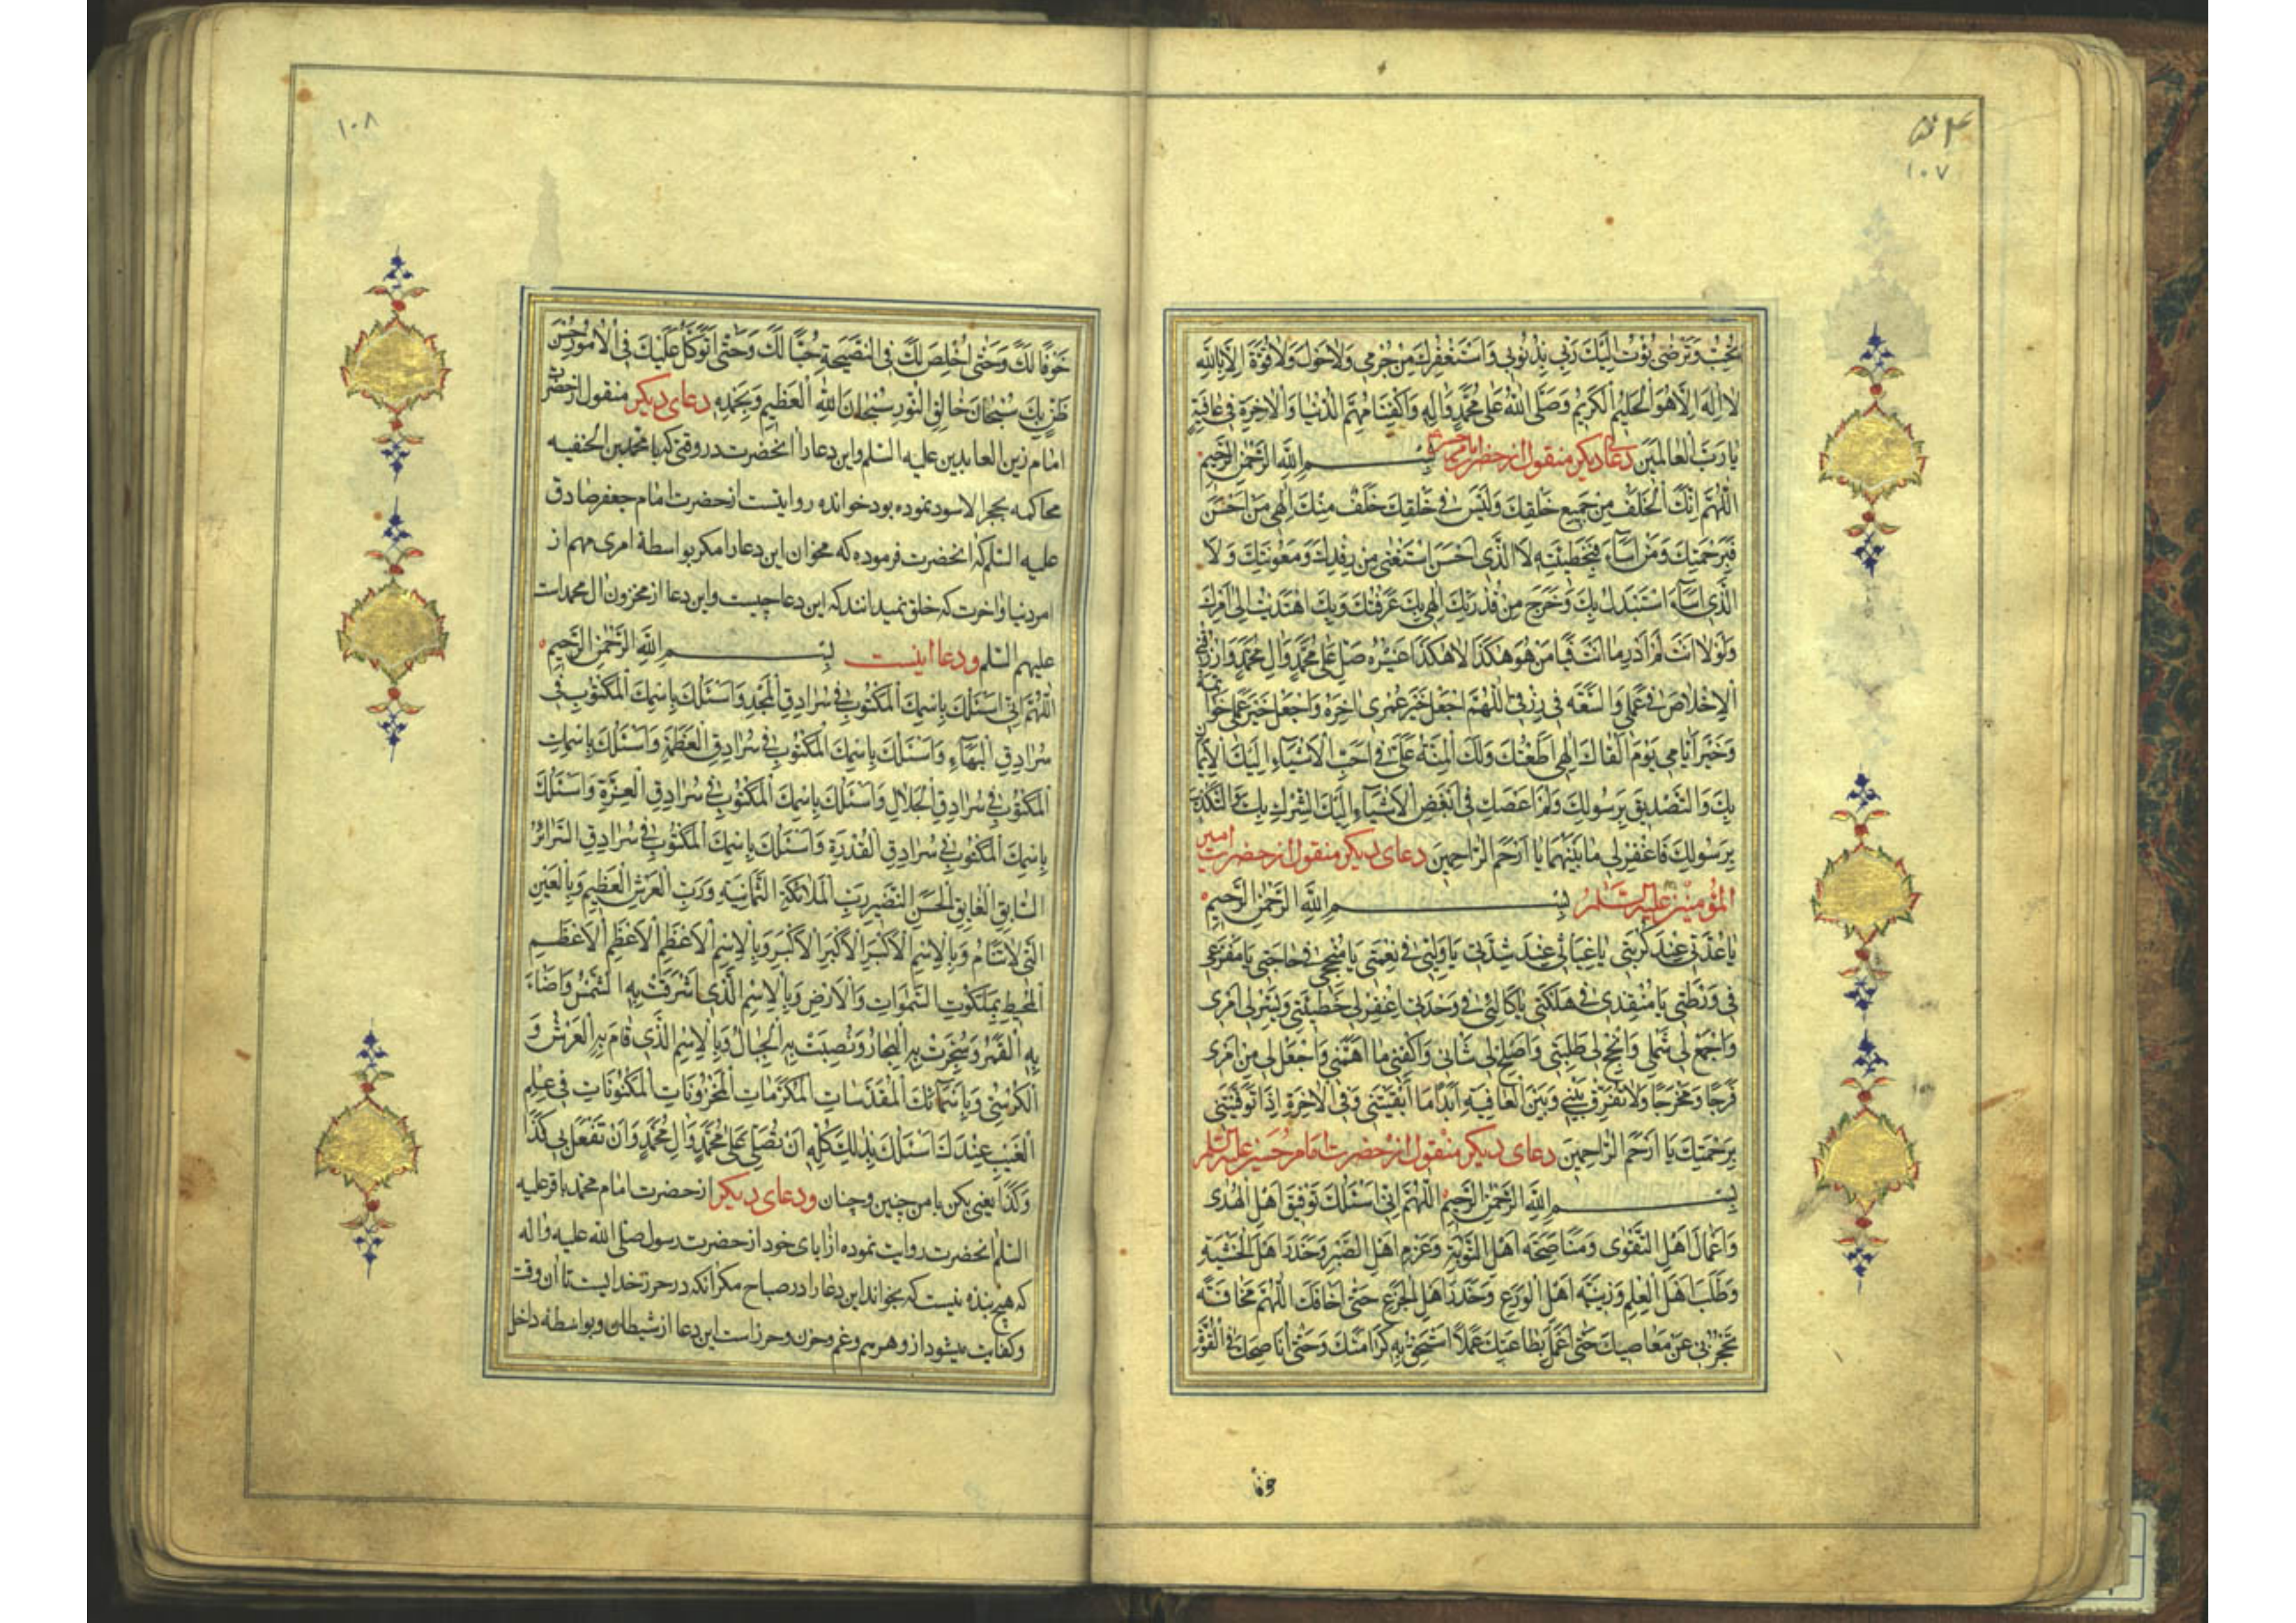 ١٠٧
تُحِبُّ وَتَرْضَىٰ تُبْتُ اِلَيْكَ رَبِّي بِذُنُوبِي وَاَسْتَغْفِرُكَ مِنْ جُرْمِي وَلَاحَوْلَ وَلَاقُوَّةَ اِلَّا بِاللّٰهِ
لَا اِلٰهَ اِلَّا هُوَ الْحَلِيمُ الْكَرِيمُ وَصَلَّى اللّٰهُ عَلىٰ مُحَمَّدٍ وَاٰلِهِ وَاكْفِنَا مُهِمَّ الدُّنْيَا وَالْاٰخِرَةِ فِي عَافِيَةٍ
يَا رَبَّ الْعَالَمِينَ دعای دیکر منقول از حضرت بِسْمِ اللّٰهِ الرَّحْمٰنِ الرَّحِيمِ
اَللّٰهُمَّ اِنَّكَ الْخَلَفُ مِنْ جَمِيعِ خَلْقِكَ وَلَيْسَ فِي خَلْقِكَ خَلَفٌ مِنْكَ اِلٰهِي مَنْ اَحْسَنَ
فَبِرَحْمَتِكَ وَمَنْ اَسَآءَ فَبِخَطِيئَتِهِ لَا الَّذِي اَحْسَنَ اسْتَغْنىٰ مِنْ رِفْدِكَ وَمَعُونَتِكَ وَلَا
الَّذِي اَسَآءَ اسْتَبْدَلَ بِكَ وَخَرَجَ مِنْ قُدْرَتِكَ اِلٰهِي بِكَ عَرَفْتُكَ وَبِكَ اهْتَدَيْتُ اِلىٰ اَمْرِكَ
وَلَوْلَا اَنْتَ لَمْ اَدْرِ مَا اَنْتَ فَيَا مَنْ هُوَ هٰكَذَا لَا هٰكَذَا غَيْرُهُ صَلِّ عَلىٰ مُحَمَّدٍ وَاٰلِ مُحَمَّدٍ وَارْزُقْنِي
الْاِخْلَاصَ فِي عَمَلِي وَالسَّعَةَ فِي رِزْقِي اَللّٰهُمَّ اجْعَلْ خَيْرَ عُمْرِي اٰخِرَهُ وَاجْعَلْ خَيْرَ عَمَلِي خَوَاتِمَهُ
وَخَيْرَ اَيَّامِي يَوْمَ اَلْقَاكَ اِلٰهِي اَطَعْتُكَ وَلَكَ الْمِنَّةُ عَلَيَّ فِي اَحَبِّ الْاَشْيَآءِ اِلَيْكَ الْاِيمَانِ
بِكَ وَالتَّصْدِيقِ بِرَسُولِكَ وَلَمْ اَعْصِكَ فِي اَبْغَضِ الْاَشْيَآءِ اِلَيْكَ الشِّرْكِ بِكَ وَالتَّكْذِيبِ
بِرَسُولِكَ فَاغْفِرْ لِي مَا بَيْنَهُمَا يَا اَرْحَمَ الرَّاحِمِينَ دعای دیکر منقول از حضرت امیر
المؤمنین علیه السّلم بِسْمِ اللّٰهِ الرَّحْمٰنِ الرَّحِيمِ
يَا عُدَّتِي عِنْدَ كُرْبَتِي يَا غِيَاثِي عِنْدَ شِدَّتِي يَا وَلِيِّي فِي نِعْمَتِي يَا مُنْجِحِي فِي حَاجَتِي يَا مَفْزَعِي
فِي وَرْطَتِي يَا مُنْقِذِي فِي هَلَكَتِي يَا كَالِئِي فِي وَحْدَتِي اِغْفِرْ لِي خَطِيئَتِي وَيَسِّرْ لِي اَمْرِي
وَاجْمَعْ لِي شَمْلِي وَاَنْجِحْ لِي طَلِبَتِي وَاَصْلِحْ لِي شَانِي وَاكْفِنِي مَا اَهَمَّنِي وَاجْعَلْ لِي مِنْ اَمْرِي
فَرَجًا وَمَخْرَجًا وَلَا تُفَرِّقْ بَيْنِي وَبَيْنَ الْعَافِيَةِ اَبَدًا مَا اَبْقَيْتَنِي وَفِي الْاٰخِرَةِ اِذَا تَوَفَّيْتَنِي
بِرَحْمَتِكَ يَا اَرْحَمَ الرَّاحِمِينَ دعای دیکر منقول از حضرت امام حسین علیه السّلم
بِسْمِ اللّٰهِ الرَّحْمٰنِ الرَّحِيمِ اَللّٰهُمَّ اِنِّي اَسْئَلُكَ تَوْفِيقَ اَهْلِ الْهُدٰى
وَاَعْمَالَ اَهْلِ التَّقْوٰى وَمُنَاصَحَةَ اَهْلِ التَّوْبَةِ وَعَزْمَ اَهْلِ الصَّبْرِ وَحَذَرَ اَهْلِ الْخَشْيَةِ
وَطَلَبَ اَهْلِ الْعِلْمِ وَزِينَةَ اَهْلِ الْوَرَعِ وَحَذَرَ اَهْلِ الْجَزَعِ حَتّٰى اَخَافَكَ اَللّٰهُمَّ مَخَافَةً
تَحْجُزُنِي عَنْ مَعَاصِيكَ حَتّٰى اَعْمَلَ بِطَاعَتِكَ عَمَلًا اَسْتَحِقُّ بِهِ كَرَامَتَكَ وَحَتّٰى اُنَاصِحَكَ فِي التَّوْبَةِ
خوفا
١٠٨
خَوْفًا لَكَ وَحَتّٰى اُخْلِصَ لَكَ فِي النَّصِيحَةِ حُبًّا لَكَ وَحَتّٰى اَتَوَكَّلَ عَلَيْكَ فِي الْاُمُورِ حُسْنَ
ظَنٍّ بِكَ سُبْحَانَ خَالِقِ النُّورِ سُبْحَانَ اللّٰهِ الْعَظِيمِ وَبِحَمْدِهِ دعای دیکر منقول از حضرت
امام زین العابدین علیه السّلم واین دعا را انحضرت در وقتی که با محمد بن الحنفیه
محاکمه بحجر الاسود نموده بود خوانده روایتست از حضرت امام جعفر صادق
علیه السّلم که انحضرت فرموده که مخوان این دعا را مکر بواسطهٔ امری مهم از
امر دنیا واخرت که خلق نمیدانند که این دعا چیست واین دعا از مخزون ال محمدات
علیهم السّلم ودعا اینست بِسْمِ اللّٰهِ الرَّحْمٰنِ الرَّحِيمِ
اَللّٰهُمَّ اِنِّي اَسْئَلُكَ بِاسْمِكَ الْمَكْتُوبِ فِي سُرَادِقِ الْمَجْدِ وَاَسْئَلُكَ بِاسْمِكَ الْمَكْتُوبِ فِي
سُرَادِقِ الْبَهَآءِ وَاَسْئَلُكَ بِاسْمِكَ الْمَكْتُوبِ فِي سُرَادِقِ الْعَظَمَةِ وَاَسْئَلُكَ بِاسْمِكَ
الْمَكْتُوبِ فِي سُرَادِقِ الْجَلَالِ وَاَسْئَلُكَ بِاسْمِكَ الْمَكْتُوبِ فِي سُرَادِقِ الْعِزَّةِ وَاَسْئَلُكَ
بِاسْمِكَ الْمَكْتُوبِ فِي سُرَادِقِ الْقُدْرَةِ وَاَسْئَلُكَ بِاسْمِكَ الْمَكْتُوبِ فِي سُرَادِقِ السَّرَائِرِ
السَّابِقِ الْفَايِقِ الْحَسَنِ النَّضِيرِ رَبِّ الْمَلَائِكَةِ الثَّمَانِيَةِ وَرَبِّ الْعَرْشِ الْعَظِيمِ وَبِالْعَيْنِ
الَّتِي لَا تَنَامُ وَبِالْاِسْمِ الْاَكْبَرِ الْاَكْبَرِ الْاَكْبَرِ وَبِالْاِسْمِ الْاَعْظَمِ الْاَعْظَمِ الْاَعْظَمِ
الْمُحِيطِ بِمَلَكُوتِ السَّمٰوَاتِ وَالْاَرْضِ وَبِالْاِسْمِ الَّذِي اَشْرَقَتْ بِهِ الشَّمْسُ وَاَضَاءَ
بِهِ الْقَمَرُ وَسُجِّرَتْ بِهِ الْبِحَارُ وَنُصِبَتْ بِهِ الْجِبَالُ وَبِالْاِسْمِ الَّذِي قَامَ بِهِ الْعَرْشُ وَ
الْكُرْسِيُّ وَبِاَسْمَآئِكَ الْمُقَدَّسَاتِ الْمُكَرَّمَاتِ الْمَخْزُونَاتِ الْمَكْنُونَاتِ فِي عِلْمِ
الْغَيْبِ عِنْدَكَ اَسْئَلُكَ بِذٰلِكَ كُلِّهِ اَنْ تُصَلِّيَ عَلىٰ مُحَمَّدٍ وَاٰلِ مُحَمَّدٍ وَاَنْ تَفْعَلَ بِي كَذَا
وَكَذَا یعنی بکن بامن چنین وچنان ودعای دیکر از حضرت امام محمد باقر علیه
السّلم انحضرت روایت نموده از ابای خود از حضرت رسول صلی الله علیه واله
که هیچ بنده نیست که بخواند این دعا را در صباح مکر انکه در حرز خدایست تا ان وقت
وکفایت میشود از و هر هم وغم وحزن وحرزاست این دعا از شیطان وبواسطهٔ داخل